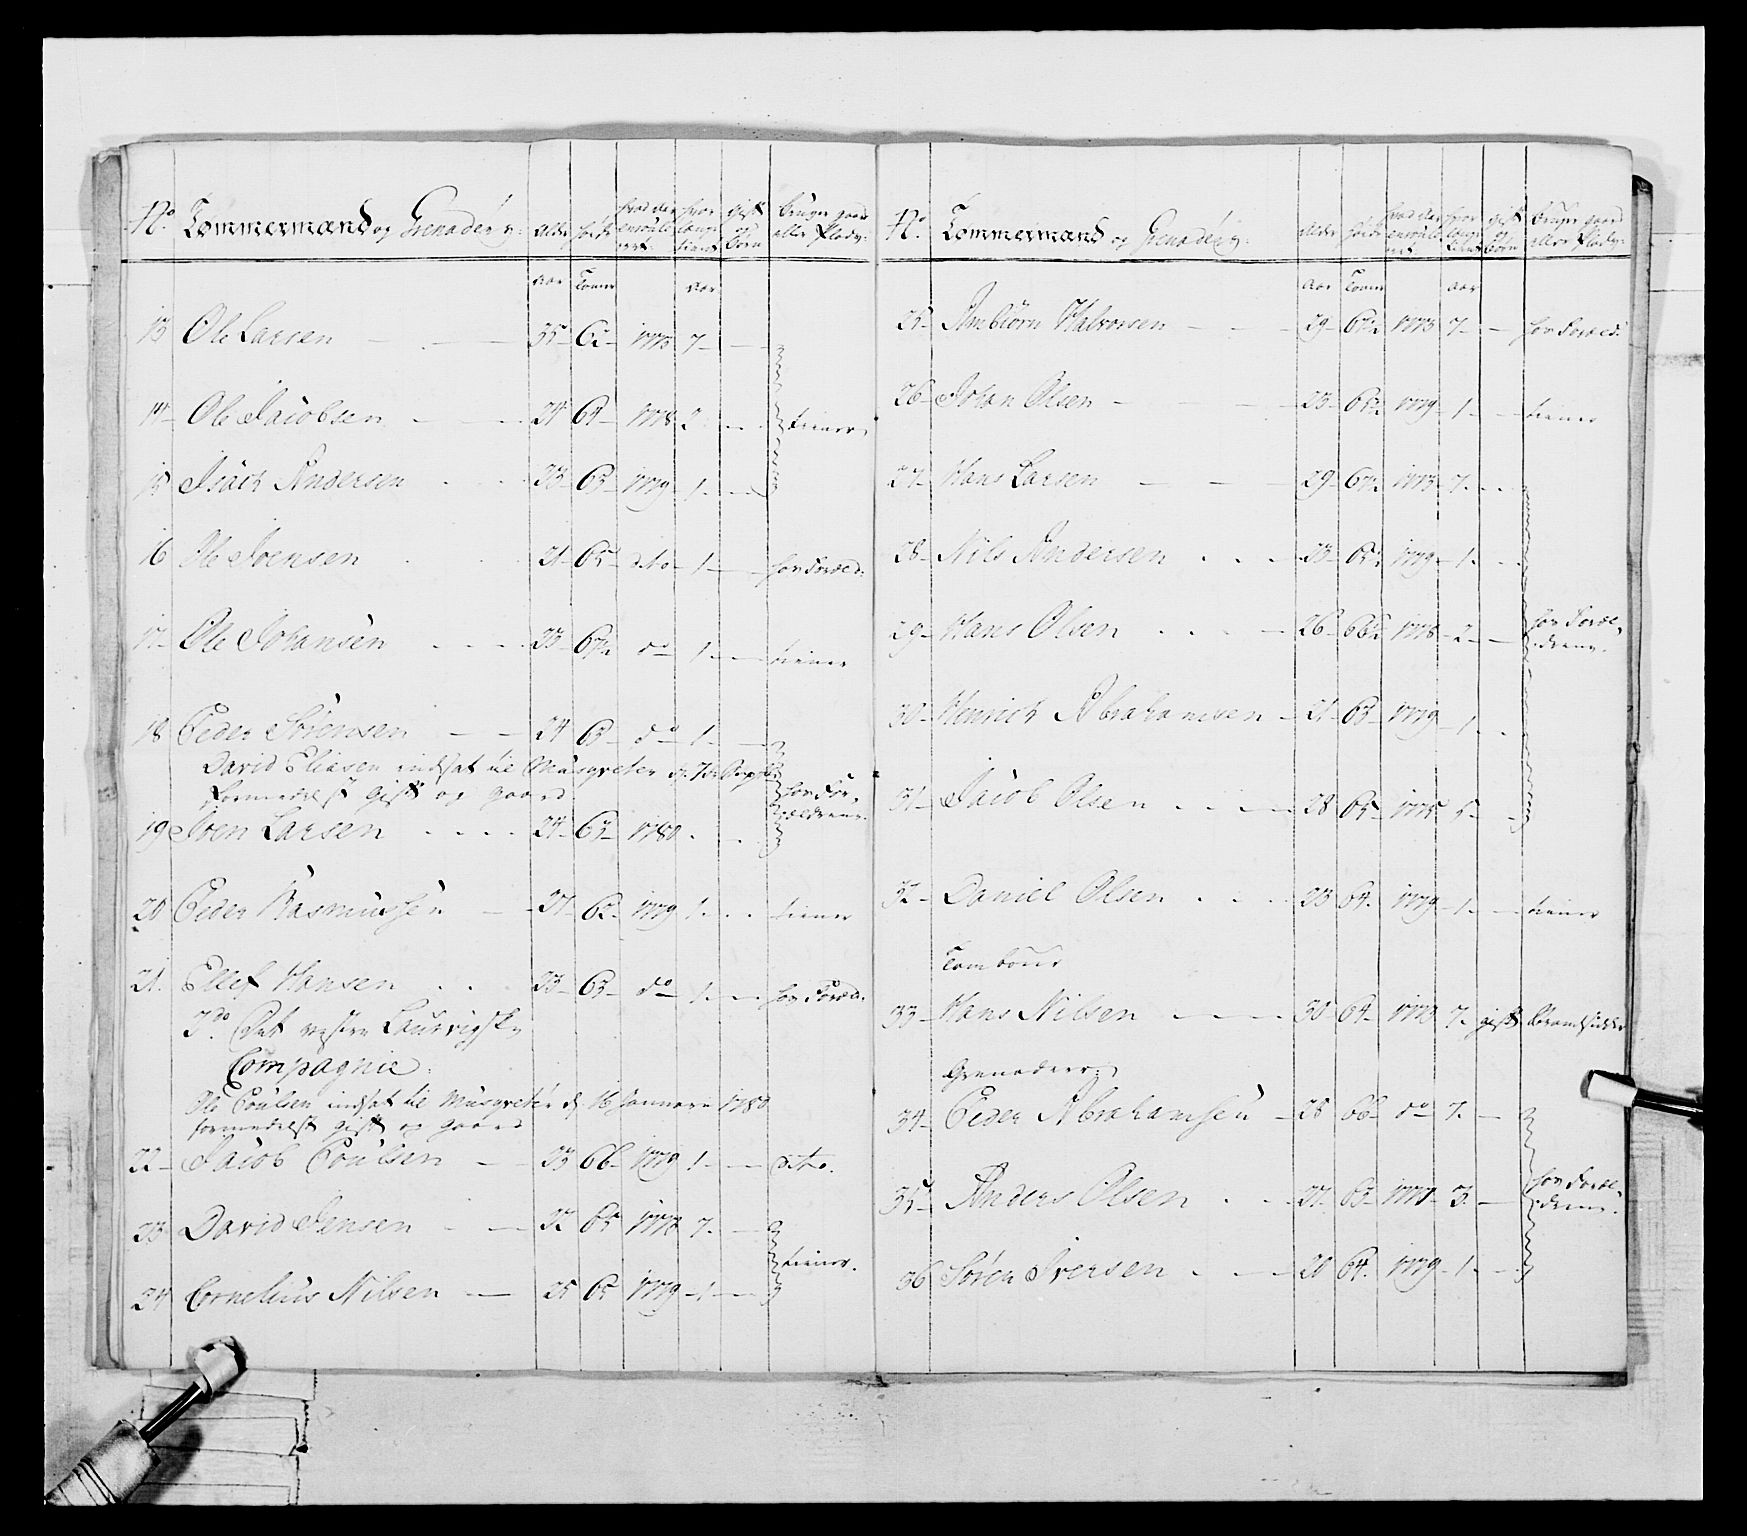 No. Tømmermænd og Grenadérer: alder høide hvad Aar enroule- ret. hvor længe tient gift og børn bruger gaard eller Plads:
aar Tomr aar
13 Ole Larsen 35 62 1773 7
14 Ole Jacobsen 24 64 1778 2 tiener
15 Isach Andersen 23 63 1779 1
16 Ole Joensen 21 65 dito 1 hos Foræld:
17 Ole Johansen 23 67½ do 1 tiener
18 Peder Sörensen 24 63 do 1
David Eliasen indsat til Musqveter
formedelst gift og gaard
hos For-
ældrene.
19 Iven Larsen 24 63 1780
20 Peder Rasmussen 27 62 1779 1 tiener
21. Ellef Hansen 23 63 do 1 hos Foræld:
3do Det vestre Laurvigske
Compagnie.
Ole Poulsen indsat til Musqveter d. 16 Januarii 1780
formedelst gift og gaard
22 Jacob Poulsen 23 66 1779 1 dito.
23 David Jensen 32 65 1773 7
tiener.
24 Cornelius Nilsen 25 65 1779 1
No. Tømmermænd og Grenadérer: alder høide hvad Aar enroule- ret. hvor længe tient gift og børn bruger gaard eller Plads:
aar Tomr aar
25 Ambiörn Halvorsen 29 67½ 1773 7 hos Foræld:
26 Johan Olsen 23 65½ 1779 1 tiener
27 Hans Larsen 29 67½ 1773 7
28 Nils Andersen 23 65½ 1779 1
29 Hans Olsen 26 66½ 1778 2 hos Foræl-
drene.
30 Henrich Abrahamsen 21 63 1779 1
31 Jacob Olsen 28 65 1775 5
32 Daniel Olsen 23 64 1779 1 tiener
Tambour
33 Hans Nilsen 30 64 1773 7 gift Strandsidder
Grenaderer
34 Peder Abrahamsen 28 66 do 7
35 Anders Olsen 27 65 1777 3 hos Foræl-
drene.
36 Sören Iversen 20 64 1779 1